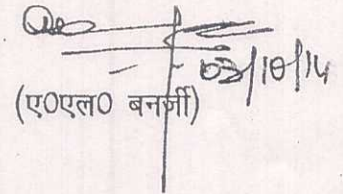 03/10/14
(ए०एल० बनर्जी)